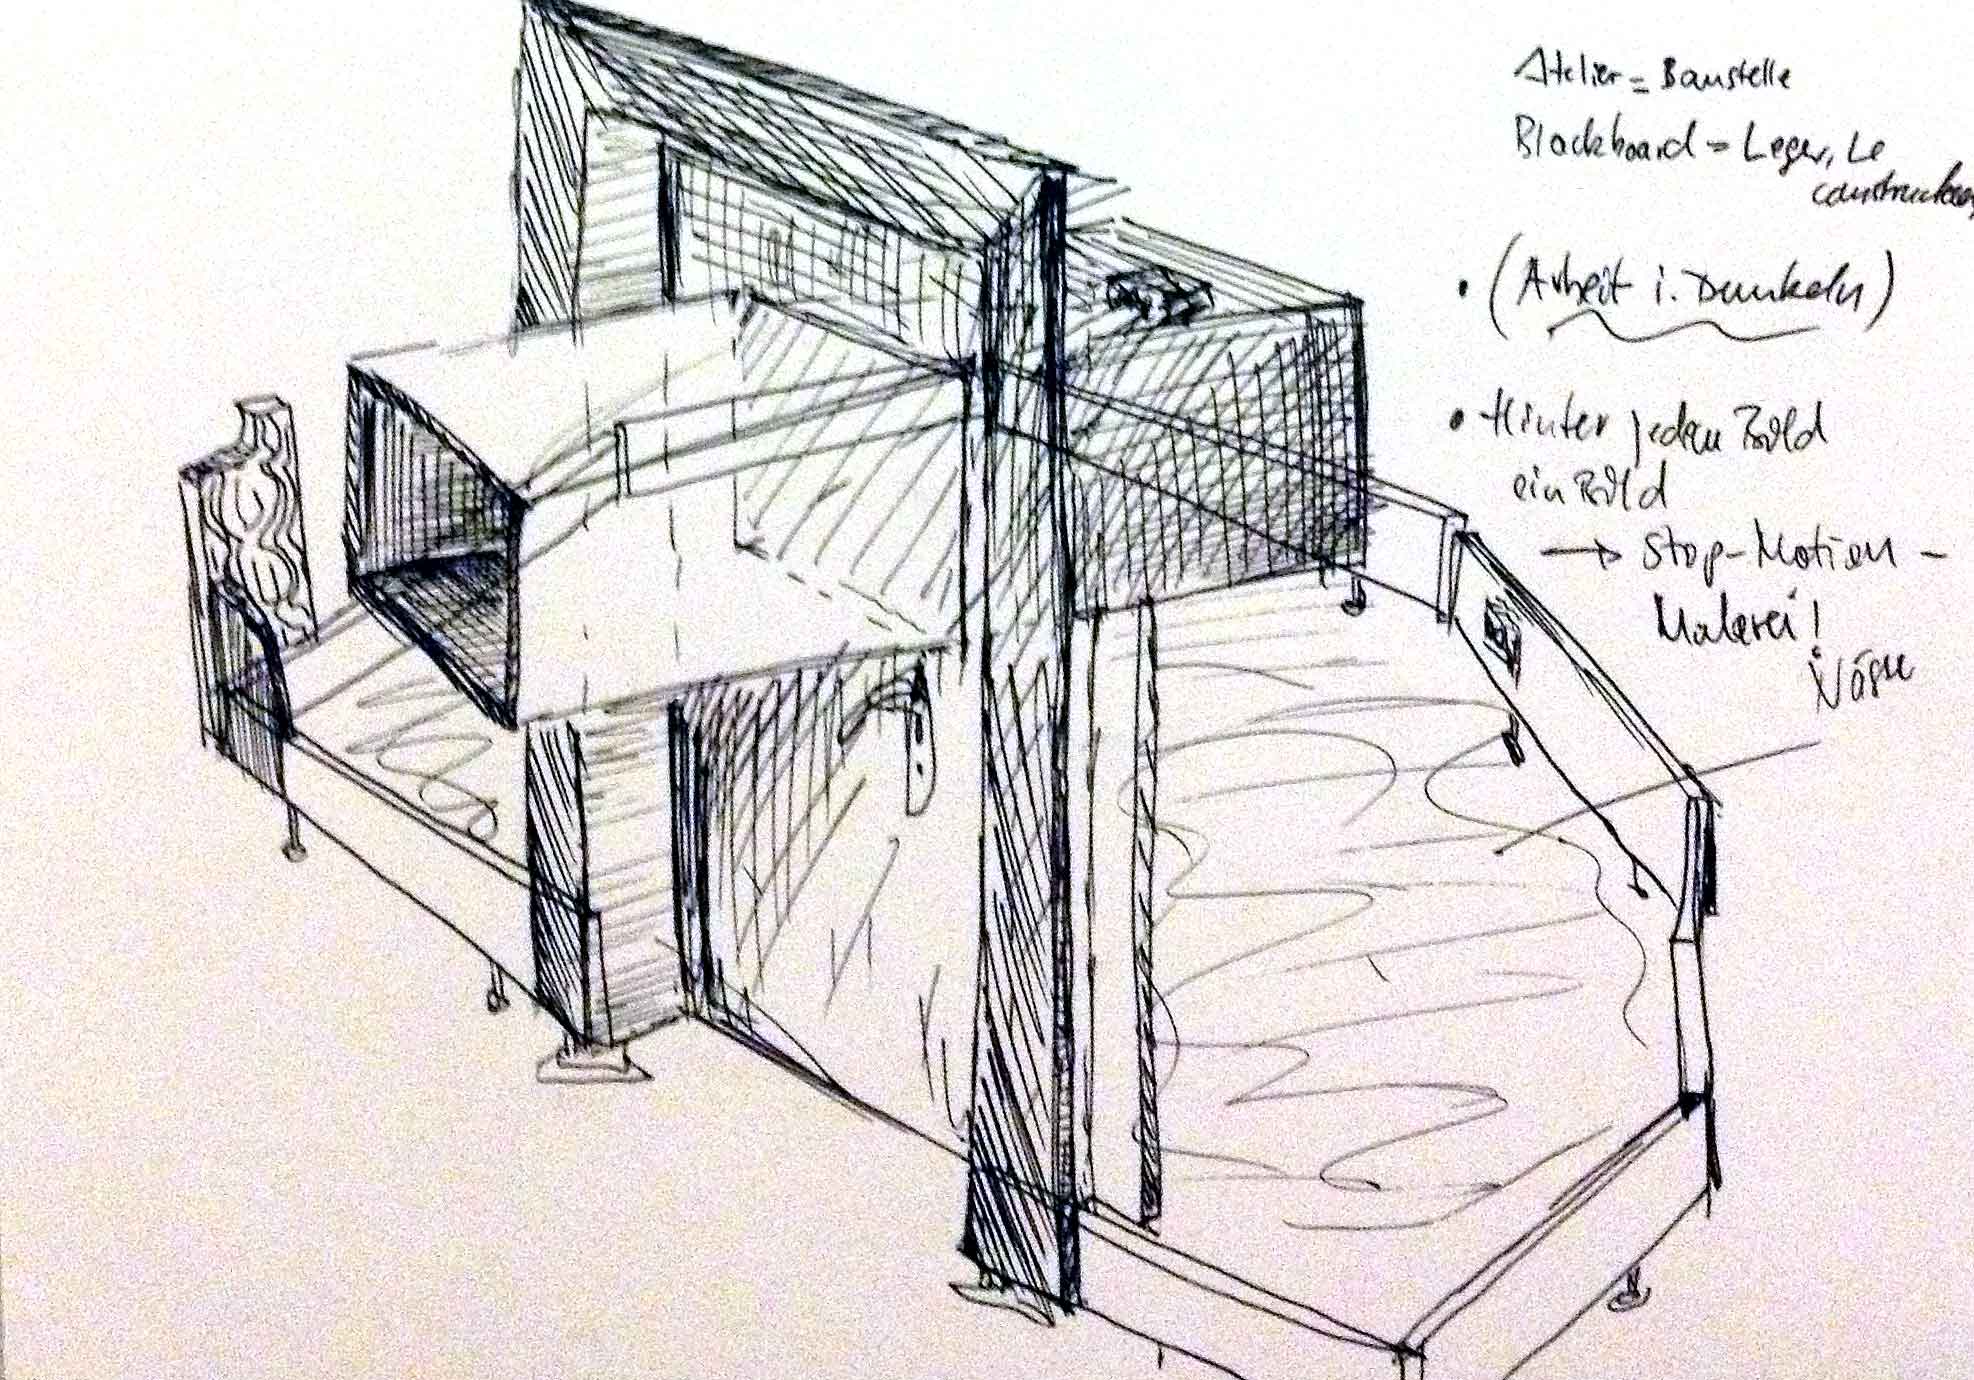 Atelier = Baustelle
Blackboard = Leger, Le
• (Arbeit i. Dunkeln)
• Hinter jedem Bild
ein Bild
→ Stop-Motion-
Malerei!